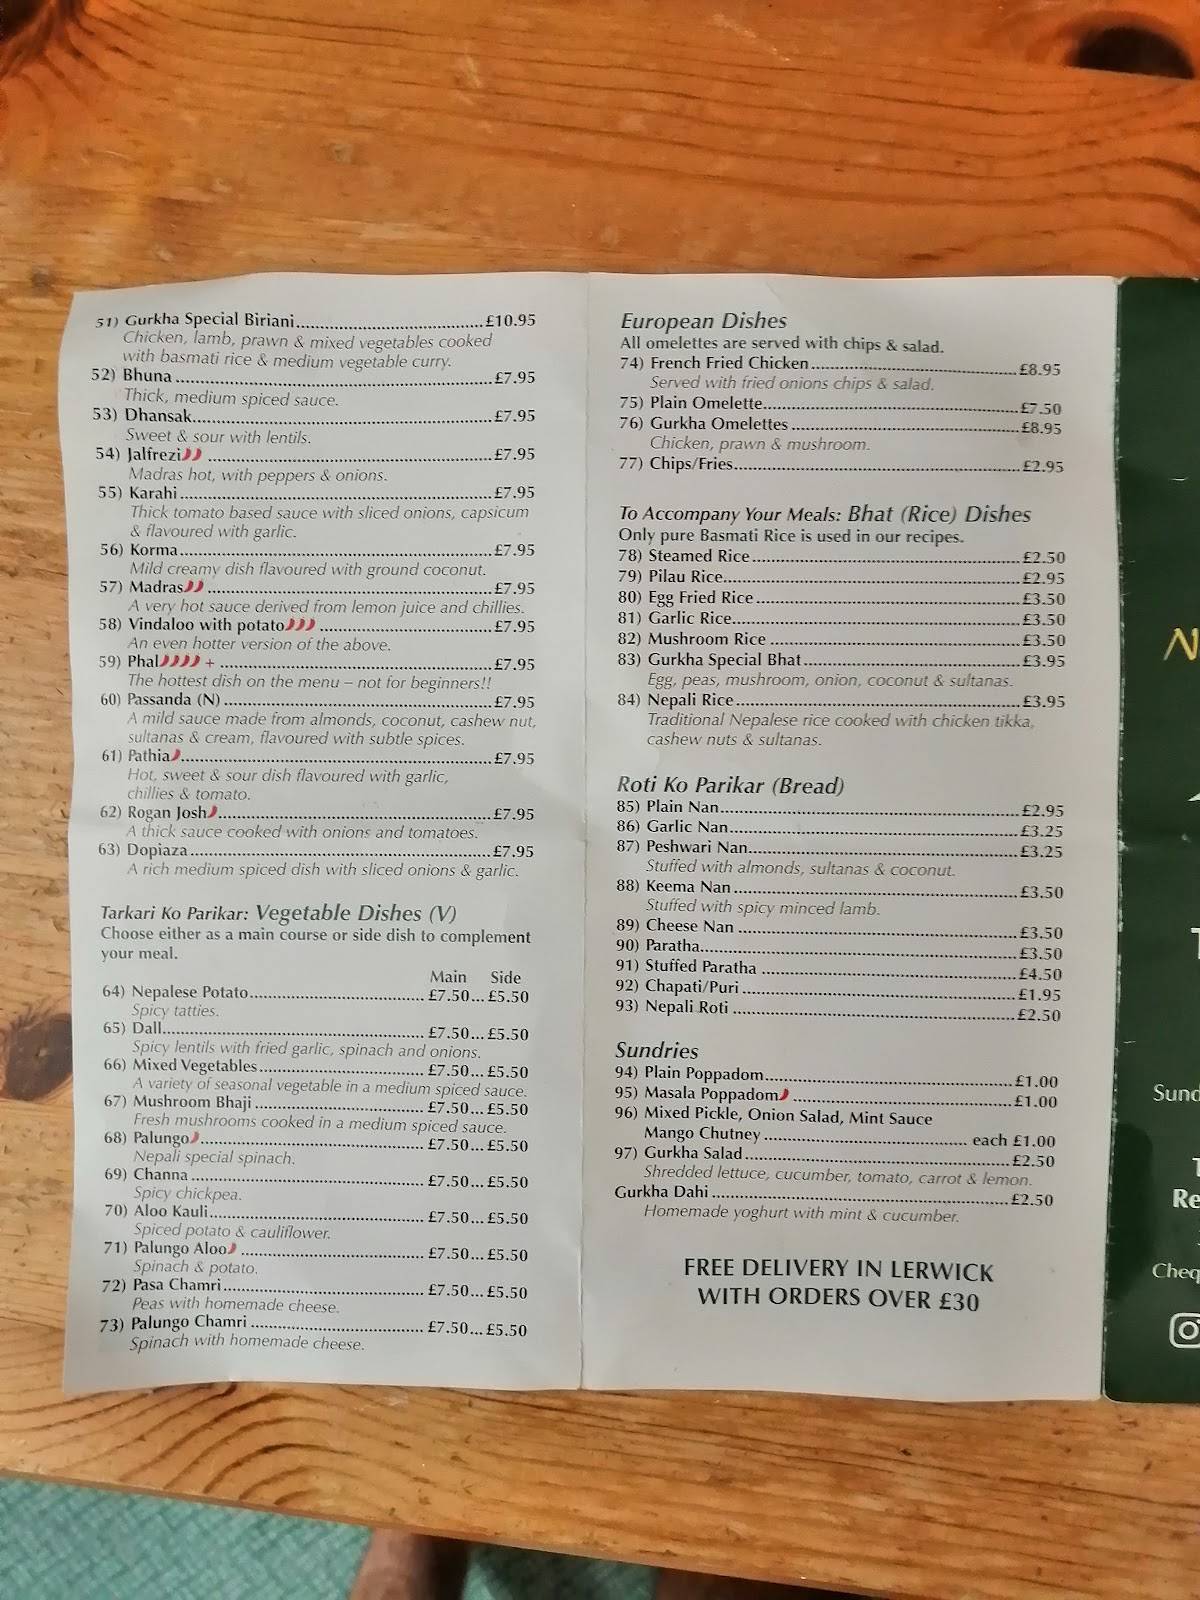 51) Gurkha Special Biriani....£10.95
Chicken, lamb, prawn & mixed vegetables cooked
with basmati rice & medium vegetable curry.
52) Bhuna....£7.95
Thick, medium spiced sauce.
53) Dhansak....£7.95
Sweet & sour with lentils.
54) Jalfrezi....£7.95
Madras hot, with peppers & onions.
55) Karahi....£7.95
Thick tomato based sauce with sliced onions, capsicum
& flavoured with garlic.
56) Korma....£7.95
Mild creamy dish flavoured with ground coconut.
57) Madras....£7.95
A very hot sauce derived from lemon juice and chillies.
58) Vindaloo with potato....£7.95
An even hotter version of the above.
59) Phal +....£7.95
The hottest dish on the menu – not for beginners!!
60) Passanda (N)....£7.95
A mild sauce made from almonds, coconut, cashew nut,
sultanas & cream, flavoured with subtle spices.
61) Pathia....£7.95
Hot, sweet & sour dish flavoured with garlic,
chillies & tomato.
62) Rogan Josh....£7.95
A thick sauce cooked with onions and tomatoes.
63) Dopiaza....£7.95
A rich medium spiced dish with sliced onions & garlic.
Tarkari Ko Parikar: Vegetable Dishes (V)
Choose either as a main course or side dish to complement
your meal.
Main Side
64) Nepalese Potato....£7.50...£5.50
Spicy tatties.
65) Dall....£7.50...£5.50
Spicy lentils with fried garlic, spinach and onions.
66) Mixed Vegetables....£7.50...£5.50
A variety of seasonal vegetable in a medium spiced sauce.
67) Mushroom Bhaji....£7.50...£5.50
Fresh mushrooms cooked in a medium spiced sauce.
68) Palungo....£7.50...£5.50
Nepali special spinach.
69) Channa....£7.50...£5.50
Spicy chickpea.
70) Aloo Kauli....£7.50...£5.50
Spiced potato & cauliflower.
71) Palungo Aloo....£7.50...£5.50
Spinach & potato.
72) Pasa Chamri....£7.50...£5.50
Peas with homemade cheese.
73) Palungo Chamri....£7.50...£5.50
Spinach with homemade cheese.
European Dishes
All omelettes are served with chips & salad.
74) French Fried Chicken....£8.95
Served with fried onions chips & salad.
75) Plain Omelette....£7.50
76) Gurkha Omelettes....£8.95
Chicken, prawn & mushroom.
77) Chips/Fries....£2.95
To Accompany Your Meals: Bhat (Rice) Dishes
Only pure Basmati Rice is used in our recipes.
78) Steamed Rice....£2.50
79) Pilau Rice....£2.95
80) Egg Fried Rice....£3.50
81) Garlic Rice....£3.50
82) Mushroom Rice....£3.50
83) Gurkha Special Bhat....£3.95
Egg, peas, mushroom, onion, coconut & sultanas.
84) Nepali Rice....£3.95
Traditional Nepalese rice cooked with chicken tikka,
cashew nuts & sultanas.
Roti Ko Parikar (Bread)
85) Plain Nan....£2.95
86) Garlic Nan....£3.25
87) Peshwari Nan....£3.25
Stuffed with almonds, sultanas & coconut.
88) Keema Nan....£3.50
Stuffed with spicy minced lamb.
89) Cheese Nan....£3.50
90) Paratha....£3.50
91) Stuffed Paratha....£4.50
92) Chapati/Puri....£1.95
93) Nepali Roti....£2.50
Sundries
94) Plain Poppadom....£1.00
95) Masala Poppadom....£1.00
96) Mixed Pickle, Onion Salad, Mint Sauce
Mango Chutney....each £1.00
97) Gurkha Salad....£2.50
Shredded lettuce, cucumber, tomato, carrot & lemon.
Gurkha Dahi....£2.50
Homemade yoghurt with mint & cucumber.
FREE DELIVERY IN LERWICK
WITH ORDERS OVER £30